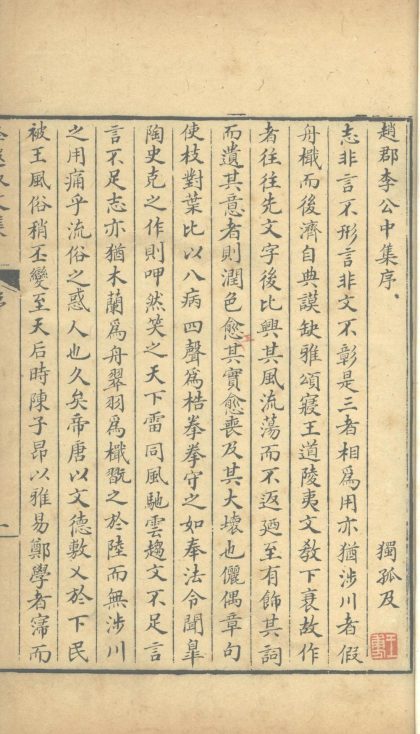 趙郡李公中集序　獨孤及
志非言不形言非文不彰是三者相爲用亦猶涉川者假
舟檝而後濟自典謨缺雅頌寢王道陵夷文敎下衰故作
者往往先文字後比興其風流蕩而不返廼至有飾其詞
而遺其意者則潤色愈其實愈喪及其大壞也儷偶章句
使枝對葉比以八病四聲爲梏拳拳守之如奉法令聞臯
陶史克之作則呷然笑之天下雷同風馳雲趨文不足言
言不足志亦猶木蘭爲舟翠羽爲檝翫之於陸而無涉川
之用痛乎流俗之惑人也久矣帝唐以文德敷乂於下民
被王風俗稍丕變至天后時陳子昂以雅易鄭學者寖而